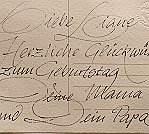 Liebe Liane
Herzliche Glückwü
zum Geburtstag
Deine Mama
und Dein Papa